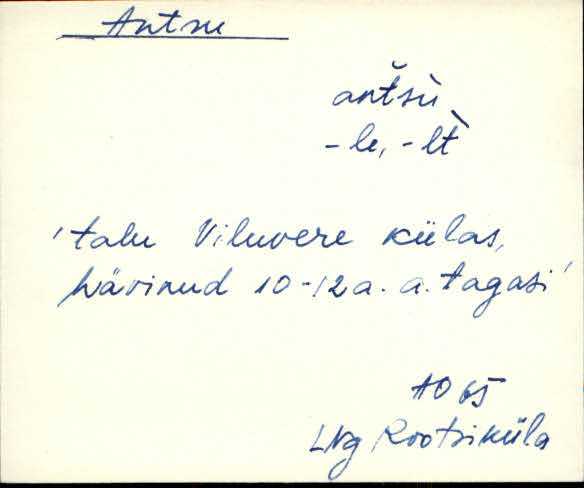 Antsu
antsù
-le, -lt
'talu Viluvere külas,
hävinud 10-12 a. a. tagasi'
AO 65
LNg Rootsiküla